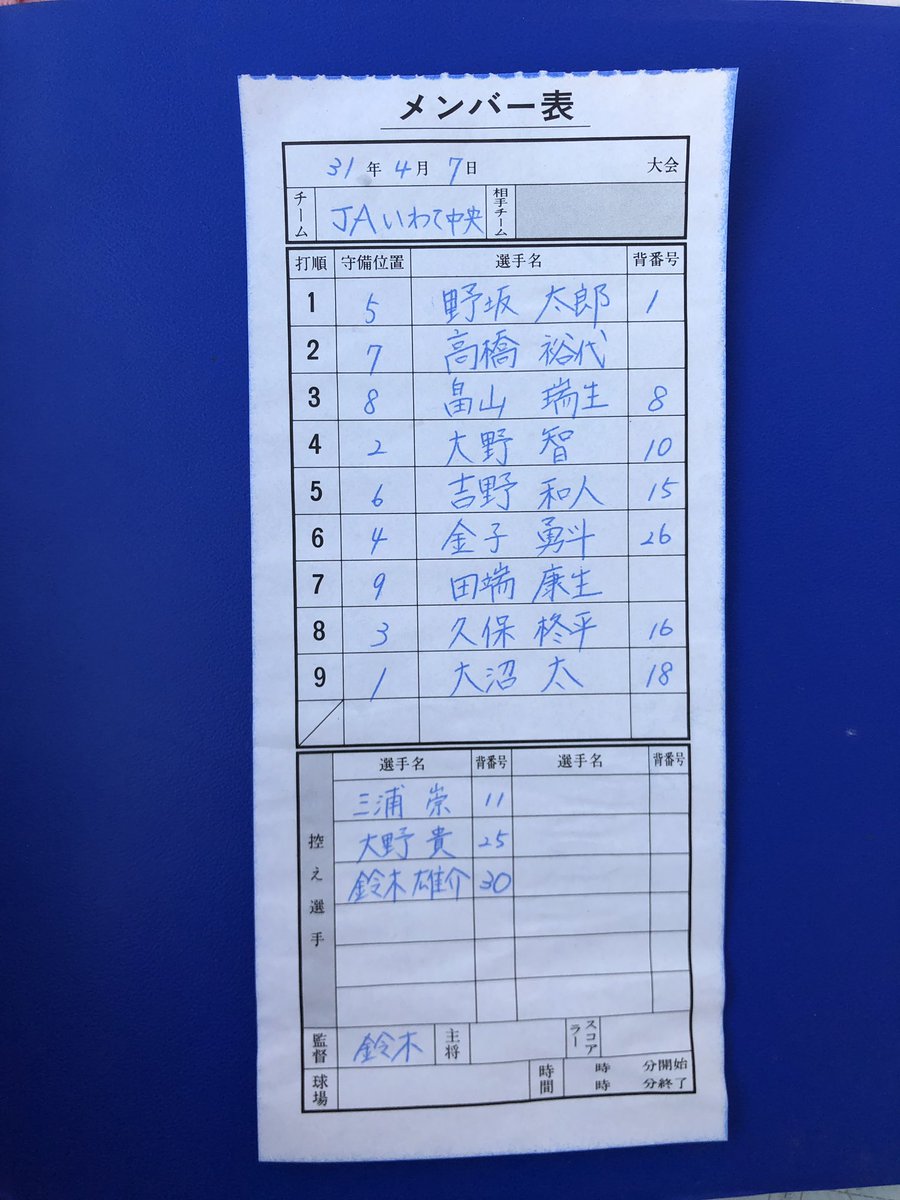 メンバー表
31年 4月 7日 大会
チーム JAいわて中央 相手チーム
打順 守備位置 選手名 背番号
1 5 野坂 太郎 1
2 7 高橋 裕代
3 8 畠山 瑞生 8
4 2 大野 智 10
5 6 吉野 和人 15
6 4 金子 勇斗 26
7 9 田端 康生
8 3 久保 柊平 16
9 1 大沼 太 18
控え選手 選手名 背番号 選手名 背番号
三浦 崇 11
大野 貴 25
鈴木 雄介 30
監督 鈴木 主将 スコアラー
球場 時間 時 分開始
時 分終了